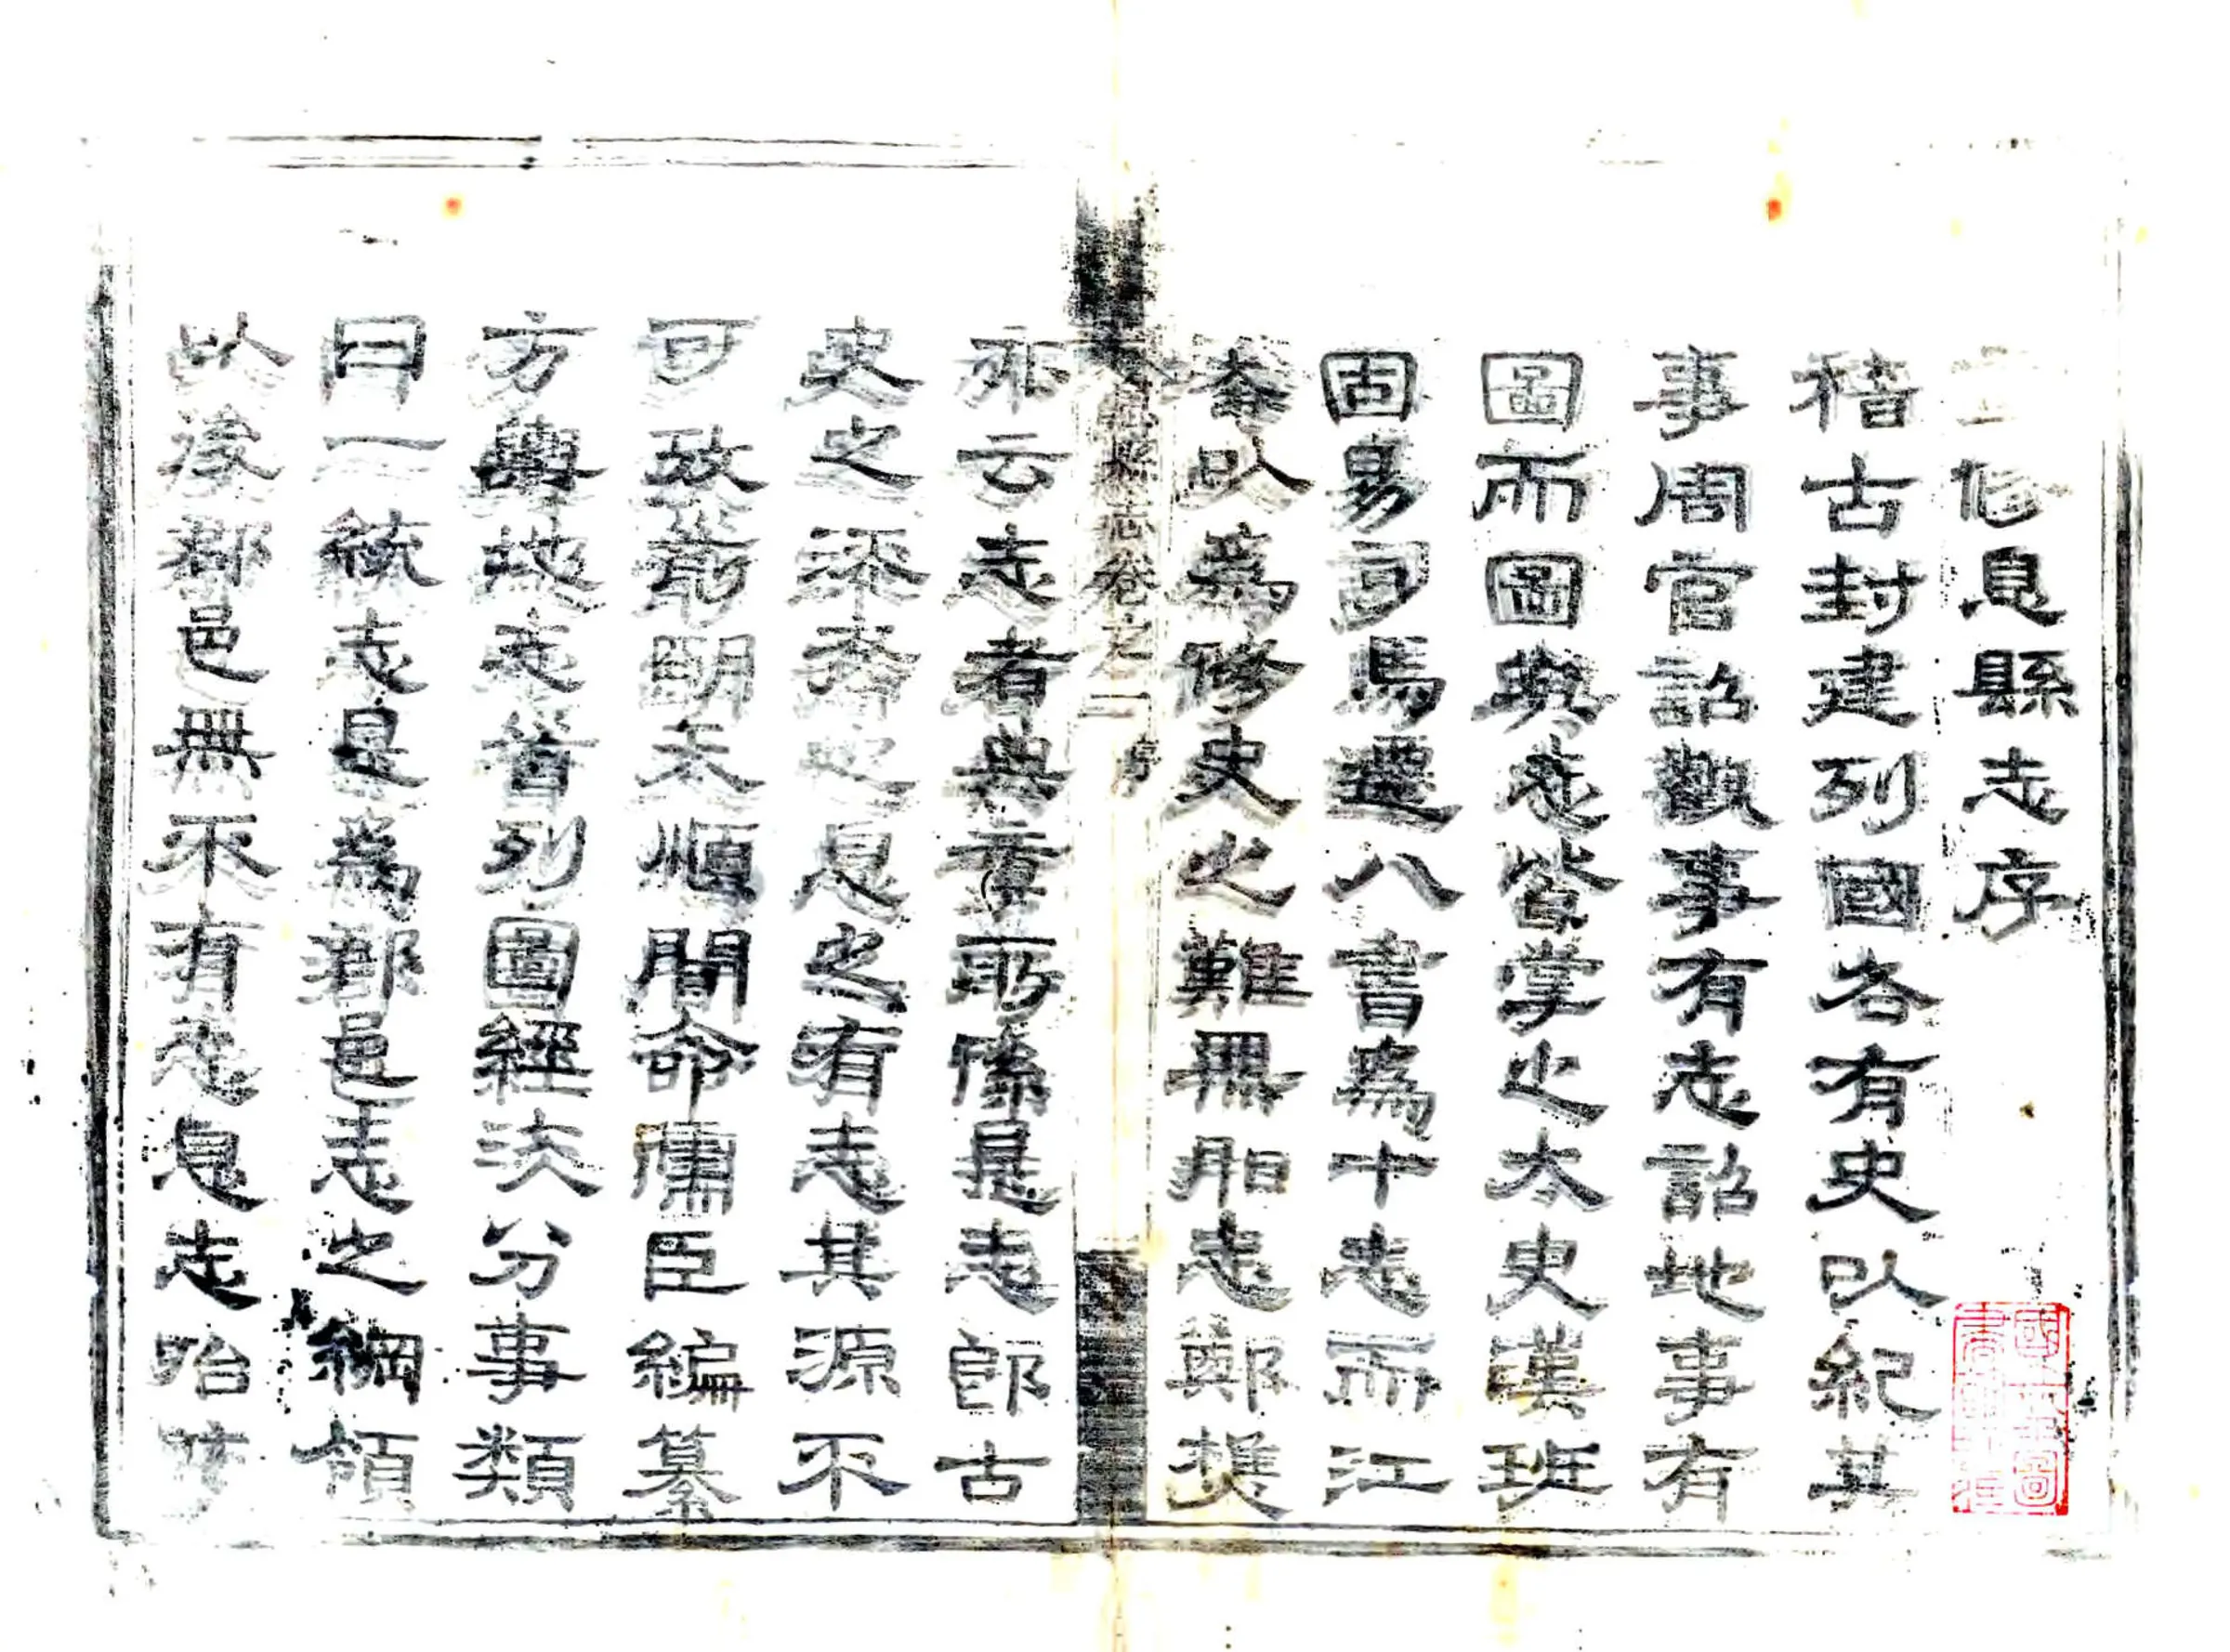 修息縣志序
稽古封建列國各有史以紀其
事周官詔觀事有志詔地事有
圖而圖與志皆掌之太史漢班
固易司馬遷八書爲十志而江
淹以爲修史之難無志鄭樵
縣志卷之一 序
亦云志者典章所係是志即古
史之流裔也息之有志其源不
可攷前明天順間命儒臣編纂
方輿地志首列圖經次分事類
曰一統志是爲郡邑志之綱領
以後郡邑無不有志息志始修